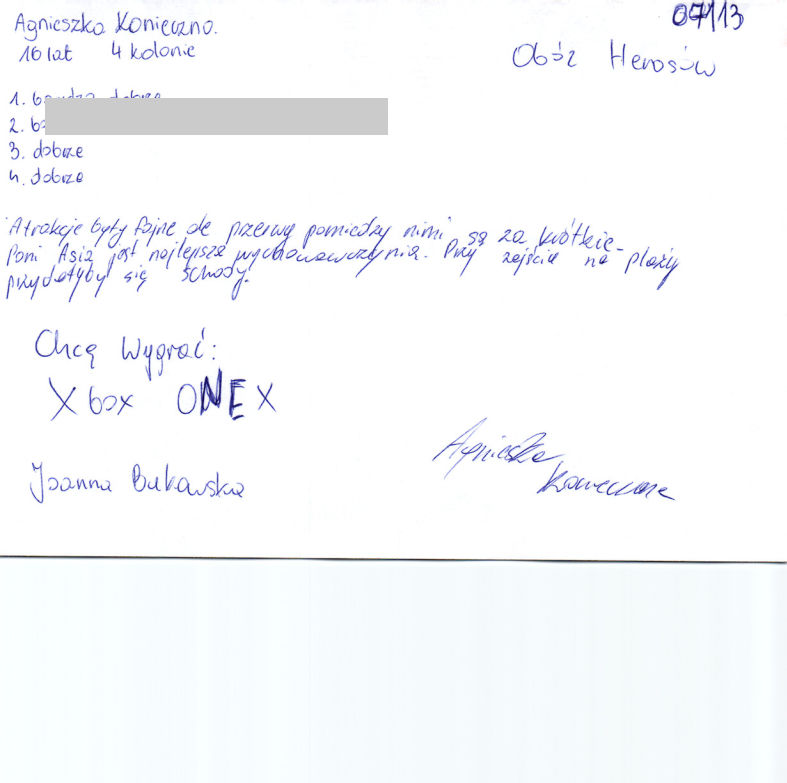 Agnieszka Konieczna.
07/13
16 lat 4 kolonie
Obóz Herosów
1.
2.
3. dobrze
4. dobrze
Atrakcje były fajne ale przerwy pomiędzy nimi są za krótkie.
Pani Asia jest najlepsza wychowawczynią. Przy zejściu na plaży
przydałyby się schody.
Chcę Wygrać:
Xbox ONE X
Joanna Bukowska
Agnieszka